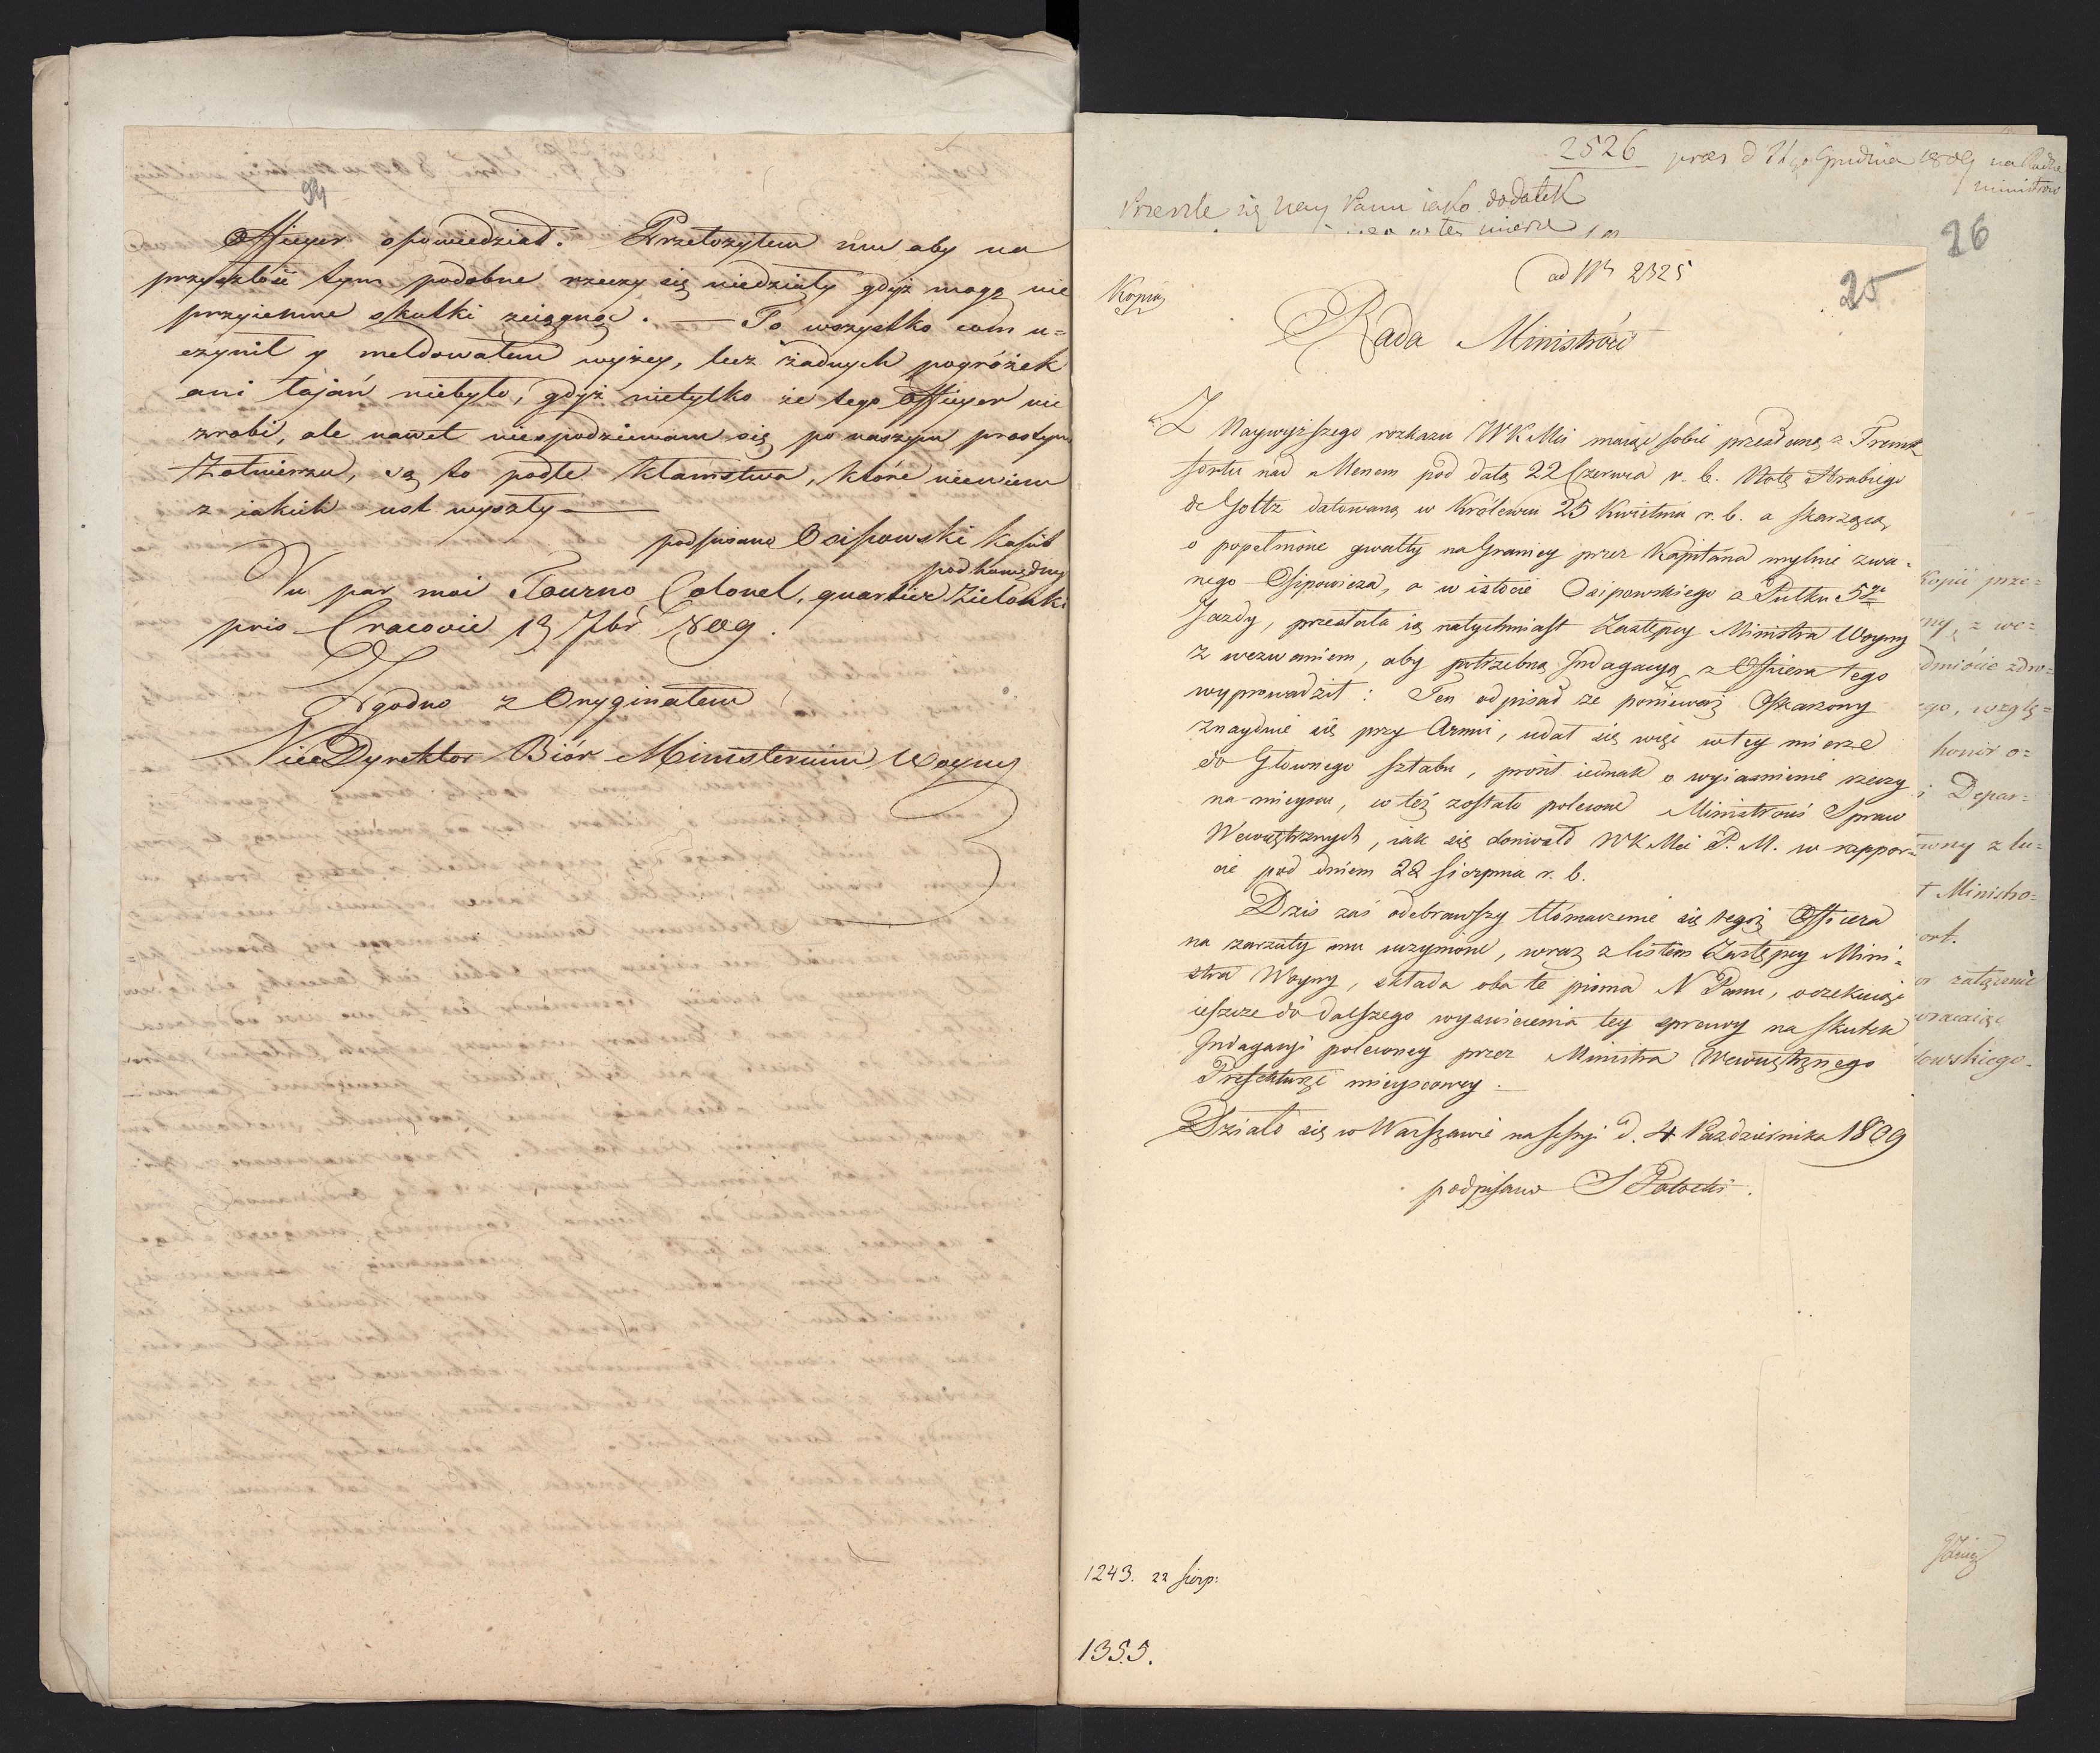 24
Officyer opowiedział. Przełożyłem mu aby na
przyszłość tym podobne rzeczy się niedziały gdyż mogą nie
przyiemne skutki zciągnąć. — To wszystko com u=
czynił y meldowałem wyżey, lecz żadnych pogróżek
ani łajań niebyło, gdyż nietylko że tego Officyer nie
zrobi, ale nawet niespodziewam się po naszym prostym
Żołnierzu, są to podłe kłamstwa, które niewiem
z iakich ust wyszły —
podpisano Osipowski Kapit
pod komędną
Vu par moi Tourno Colonel, quartier Zielonki
pris Cracovie 13 7br 1809.
Zgodno z Oryginałem
Vice Dyrektor Biór Ministerium Woyny
2526 praes d Grudnia 1809 na Radzie
ministrów
Przeszle się Nay Panu iako dodatek
w tey mierze
26
Kopia
ad Nr 2325
25
Rada Ministrów
Z Naywyższego rozkazu WK Mci maiąc sobie przesłaną z Frank
fortu nad Menem pod datą 22 Czerwca r. b. Notę Hrabiego
de Goltz datowaną w Królewcu 25 Kwietnia r. b. a skarżącą
o popełnione gwałty na Granicy przez Kapitana mylnie zwa=
nego Osipowicza, a w istocie Osipowskiego z Pułku 5go
Jazdy, przesłała ią natychmiast Zastępcy Ministra Woyny
z wezwaniem, aby potrzebną Indagacyą z Officera tego
wyprowadził: Ten odpisał że ponieważ Oskarżony
znayduie się przy Armii, udał się więc w tey mierze
do Głownego sztabu, prosił iednak o wyiaśnienie rzeczy
na mieyscu, co też zostało polecone Ministrowi Spraw
Wewnętrznych, iak się doniosło WK Mci P. M. w rappor=
cie pod dniem 22 Sierpnia r. b.
Dziś zaś odebrawszy tłómaczenie się tegoż Officera
na zarzuty mu uczynione, wraz z listem Zastępcy Mini=
stra Woyny, składa oba te pisma N Panu, oczekuiąc
ieszcze do dalszego wyświecenia tey sprawy na skutek
Indagacyi poleconey przez Ministra Wewnętrznego
Prefekturze mieyscowey.
Działo się w Warszawie na sessyi d. 4 Października 1809
podpisano S Potocki.
1243. 22 sierp:
1353.
Kopii prze=
ny, z we=
dmiocie zdro=
ego, wzglę=
honor o=
i Depar=
wny z tu=
t Ministro=
ort.
or załączenie
wracaiąc
owskiego.